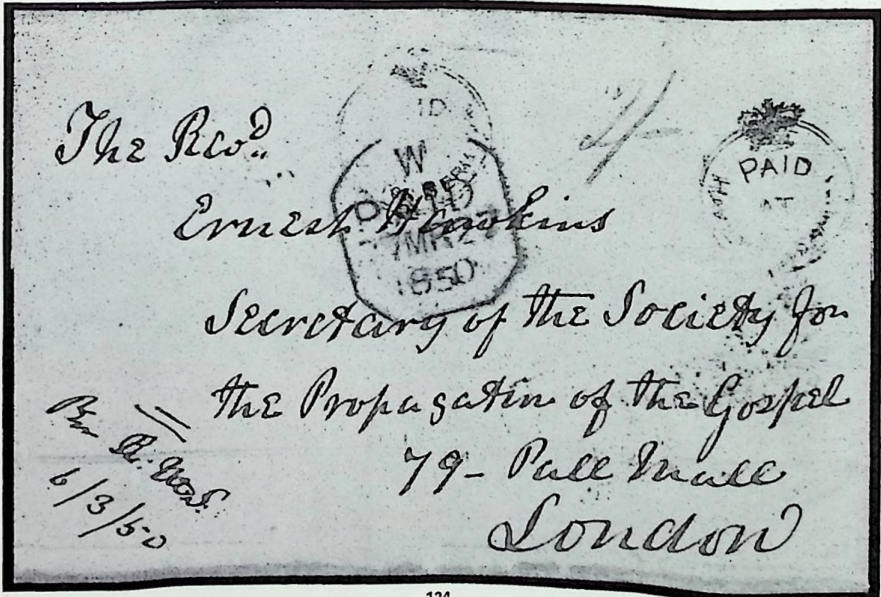 The Revd.
Ernest Hawkins
Secretary of the Society for
the Propagation of the Gospel
79- Pall Mall
London
2/-
PAID
AT
ID
W
PAID
MR 2
1850
6/3/50
124